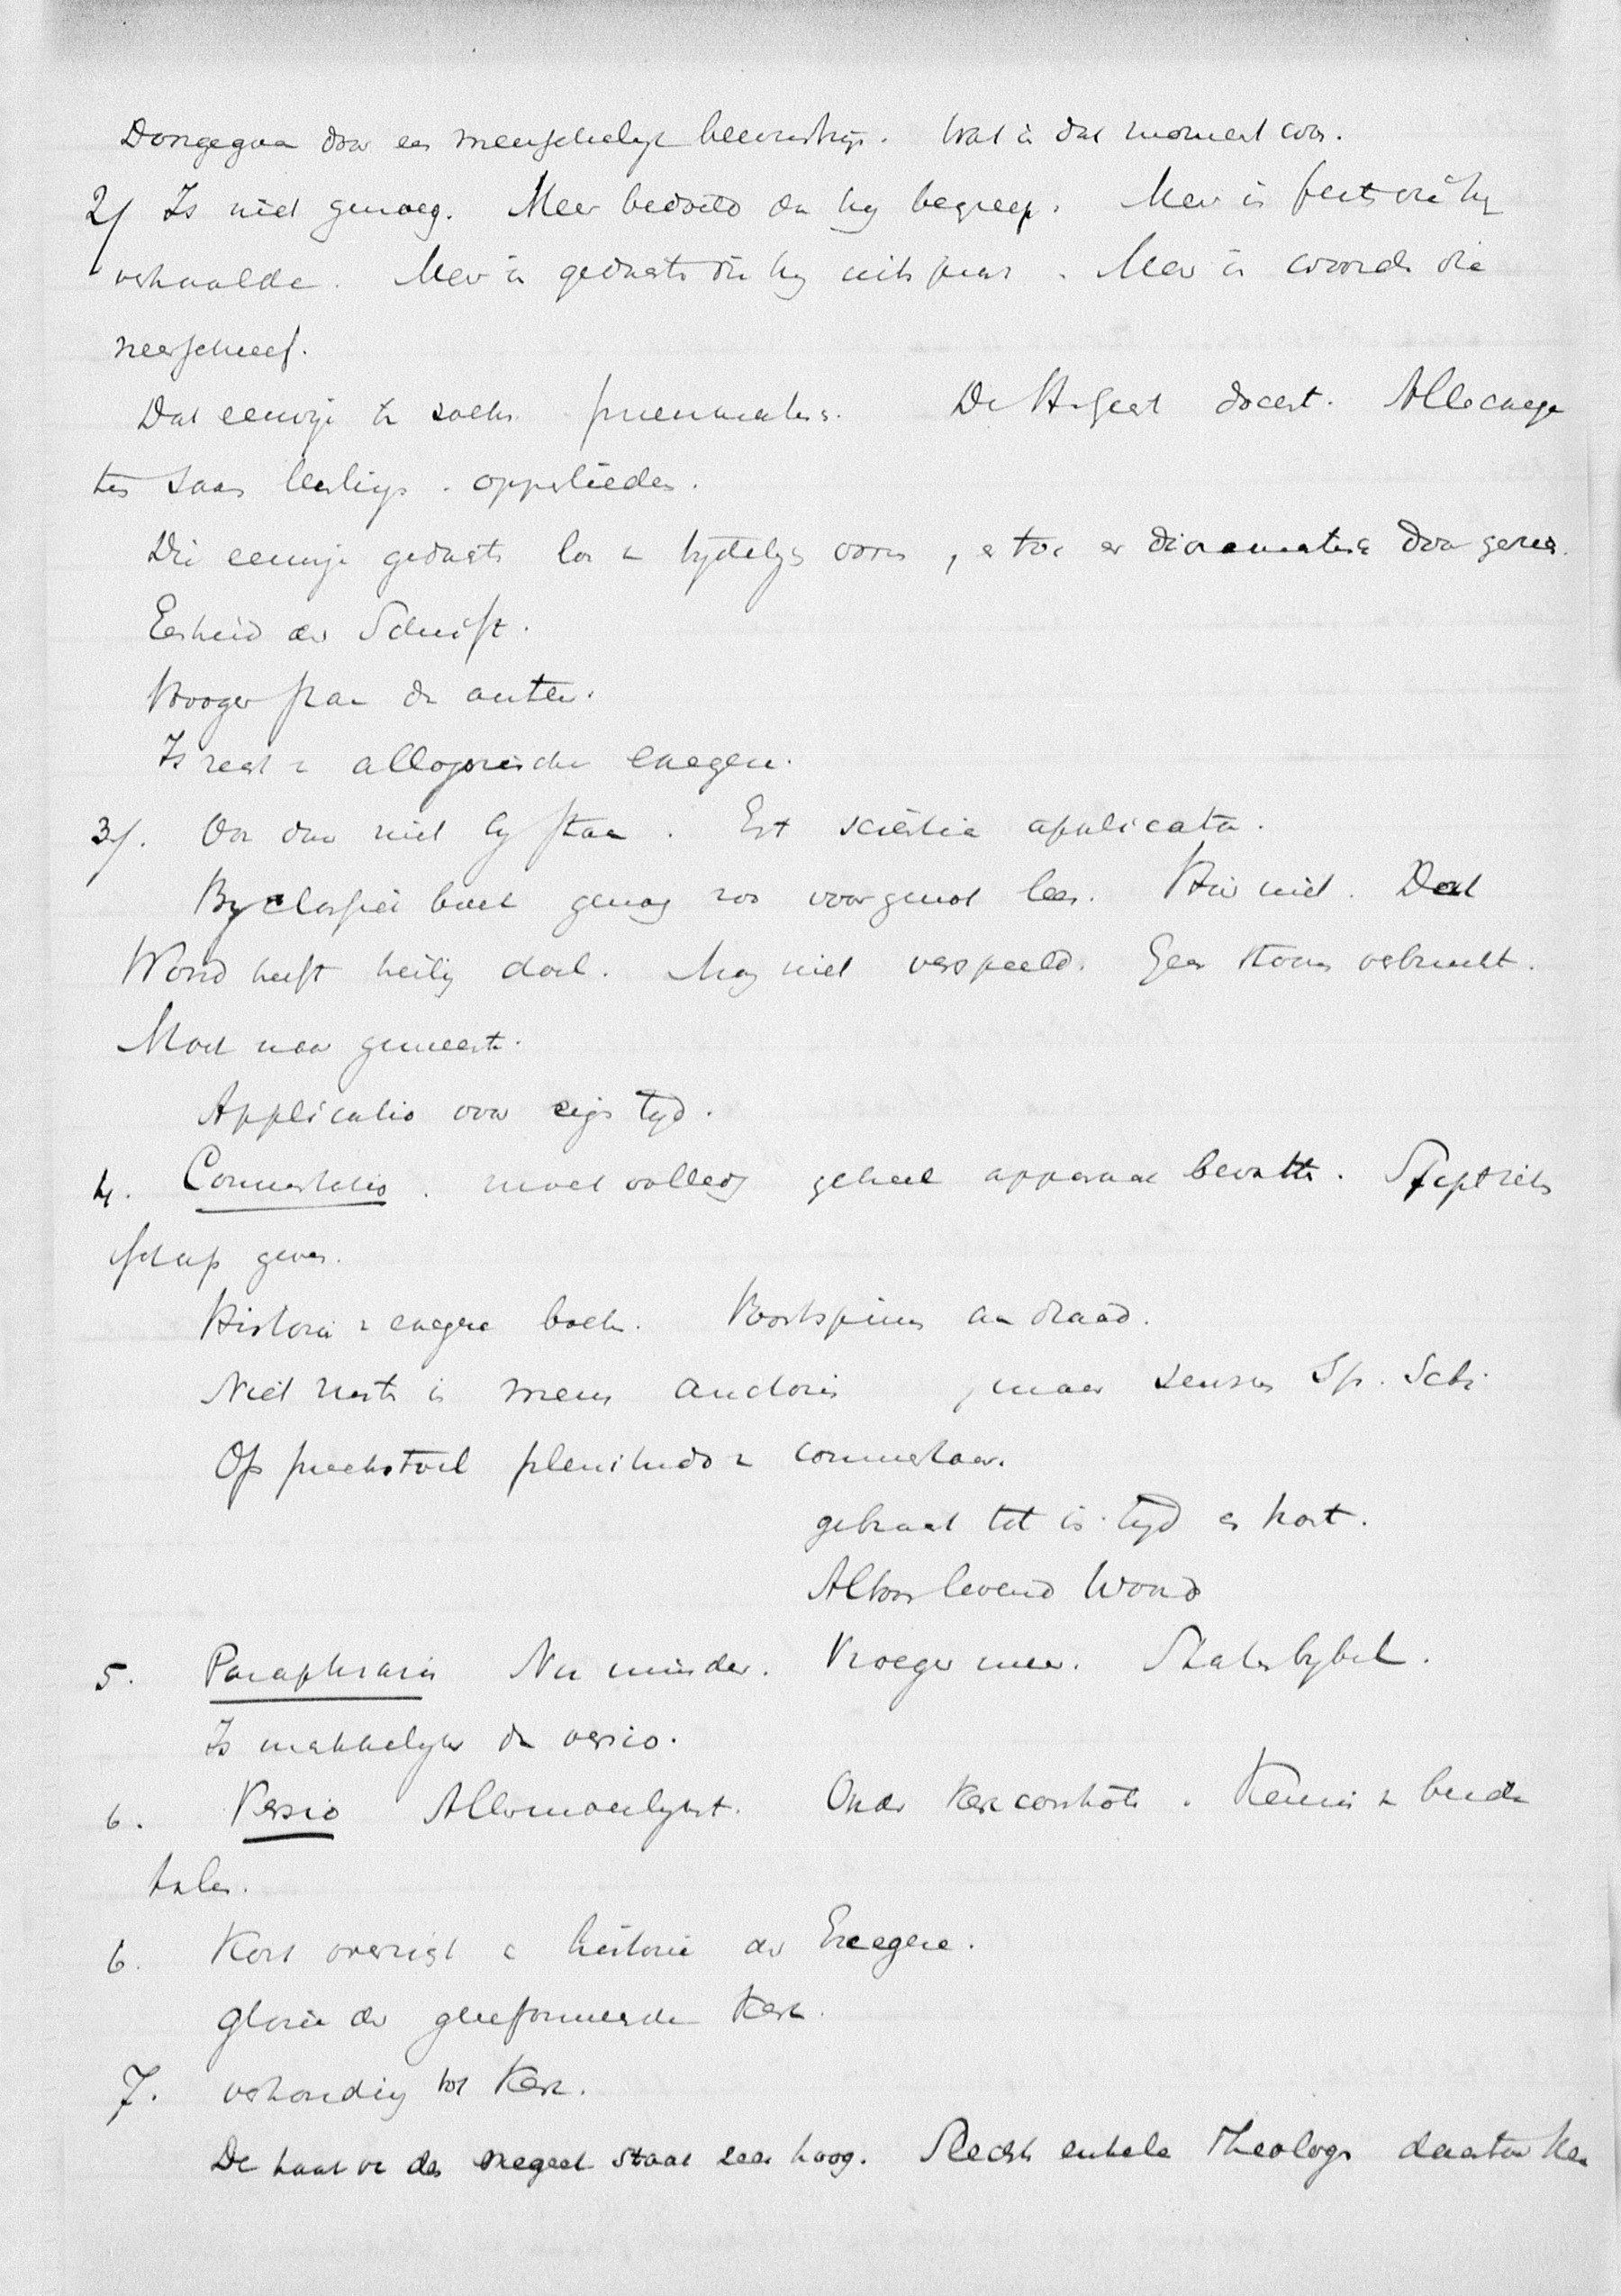 Doorgegaan door een menschelyk bewustzyn. Wat in dat moment was.
2/ Is niet genoeg. Meer bedoeld dan hy begreep. Meer in feit die hy
verhaalde. Meer in gedachte die hy uitsprak. Meer in woorden die
neerschreef.
Dat eeuwige te zoeken pneumatisch. De H. Geest docet.
tes Zaans leerlinge opperlieden.
Die eeuwige gedachte los van tydelyke vorm, en toch er door
Eenheid der Schrift.
Hooger staan dan auteur.
Is recht van allegorische exegese.
3/. Daar dan niet by staan. Est scientia applicata.
By classici boek genoeg zoo voor genot lees. Hier niet. Dat
Woord heeft heilig doel. Mag niet verspeeld. Geen stoom verbruikt.
Moet naar gemeente.
Applicatio voor eigen tyd.
4. Commentatio. moet volledig geheel apparaat bevatten.
schap geven.
Historie van exegese boek. Voortspinnen aan draad.
Niet rusten in mens auctoris, maar sensus Sp. Scti
Op preekstoel plenitudo van commentaar.
gebrast tot is tyd en kort.
Altoos levend Woord
5. Paraphrasis Nu minder. Vroeger meer. Statenbybel.
Is makkelyker dan versio.
6. Versio Allermoeilykst. Onder Kerkcontrôle. Kennis van beide
talen.
6. Kort overzicht van historie der Exegese.
Glorie der gereformeerde Kerk.
7. verhouding tot Kerk.
De taak van den exegeet staat zeer hoog. Slechts enkele Theologen daartoe